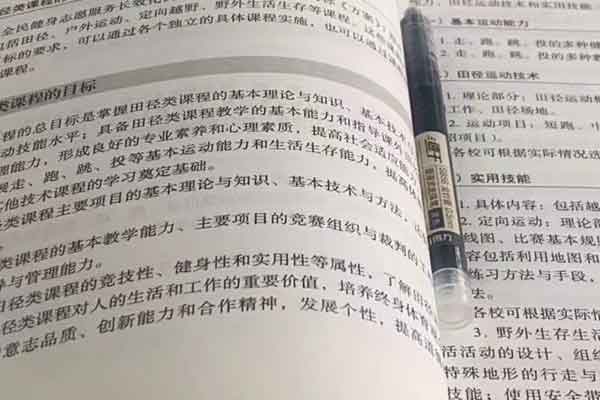 类课程的
全民健身志愿服务长效化
包括田径、户外运动、定向越野、野外生活生存等课程。这
标的要求，可以通过各个独立的具体课程实施，也可以通过
课程。
类课程的目标
程的总目标是掌握田径类课程的基本理论与知识、基本技术
动技能水平；具备田径类课程教学的基本能力和指导
理能力，形成良好的专业素养和心理素质，提高社会适应能
握走、跑、跳、投等基本运动能力和生活生存能力，提高
其他技术课程的学习奠定基础。
类课程主要项目的基本理论与知识、基本技术与方法，
类课程的基本教学能力、主要项目的竞赛组织与裁判的工
与管理能力。
田径类课程的竞技性、健身性和实用性等属性，了解田径
径类课程对人的生活和工作的重要价值，培养终身体育
意志品质、创新能力和合作精神，发展个性，提高道
方法、田径运动技术和实用技能。
一）基本运动能力
1. 走、跑、跳、投的多种健
2. 走、跑、跳、投的多种
）田径运动技术
1. 理论部分：田径运动概
工作、田径场地。
2. 运动项目：短跑、中
招项目）。
各校可根据实际情况选
）实用技能
1. 具体内容：包括越
2. 定向运动：理论部
线图、比赛基本规则
容包括利用地图和
练习方法与手段，
法。
各校可根据实际情
3. 野外生存生活
活活动的设计、组织
特殊地形的行走与
技能；使用安全带